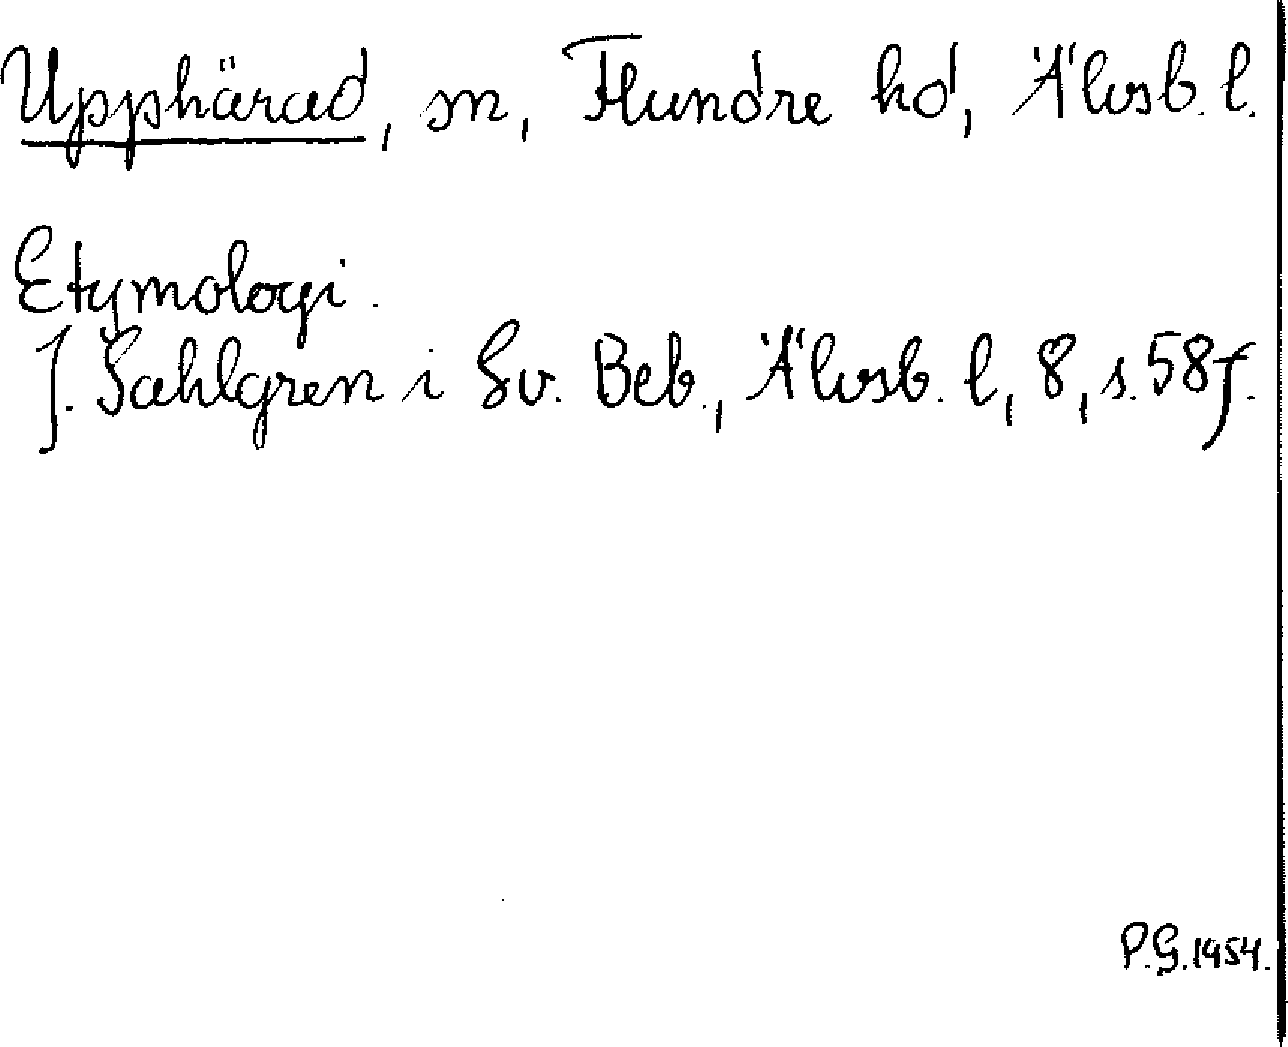 Upphärad, sn, Flundre hd, Älvsb. l.
Etymologi.
J. Sahlgren i Sv. Beb., Älvsb. l, 8, s. 58 f.
P.G. 1954.